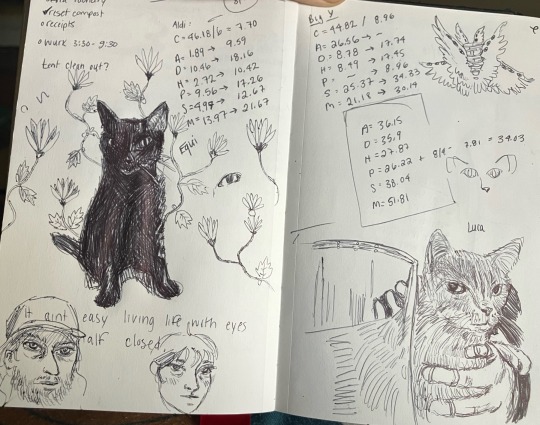 ✓reset compost
o receipts
o work 3:30 - 9:30
tent clean out?
Aldi
C = 46.18/6 = 7.70
A = 1.89 → 9.59
D = 10.46 → 18.16
H = 2.72 → 10.42
P = 9.56 → 17.26
S = 4.97 → 12.67
M = 13.97 → 21.67
Equi
It aint easy living life with eyes
half closed
Big Y
C = 44.82 / 8.96
A = 26.56 →
D = 8.78 → 17.74
H = 8.49 → 17.45
P = → 8.96
S = 25.37 → 34.33
M = 21.18 → 30.14
A = 36.15
D = 35.9
H = 27.87
P = 26.22 + 7.81 = 34.03
S = 38.04
M = 51.81
Luca